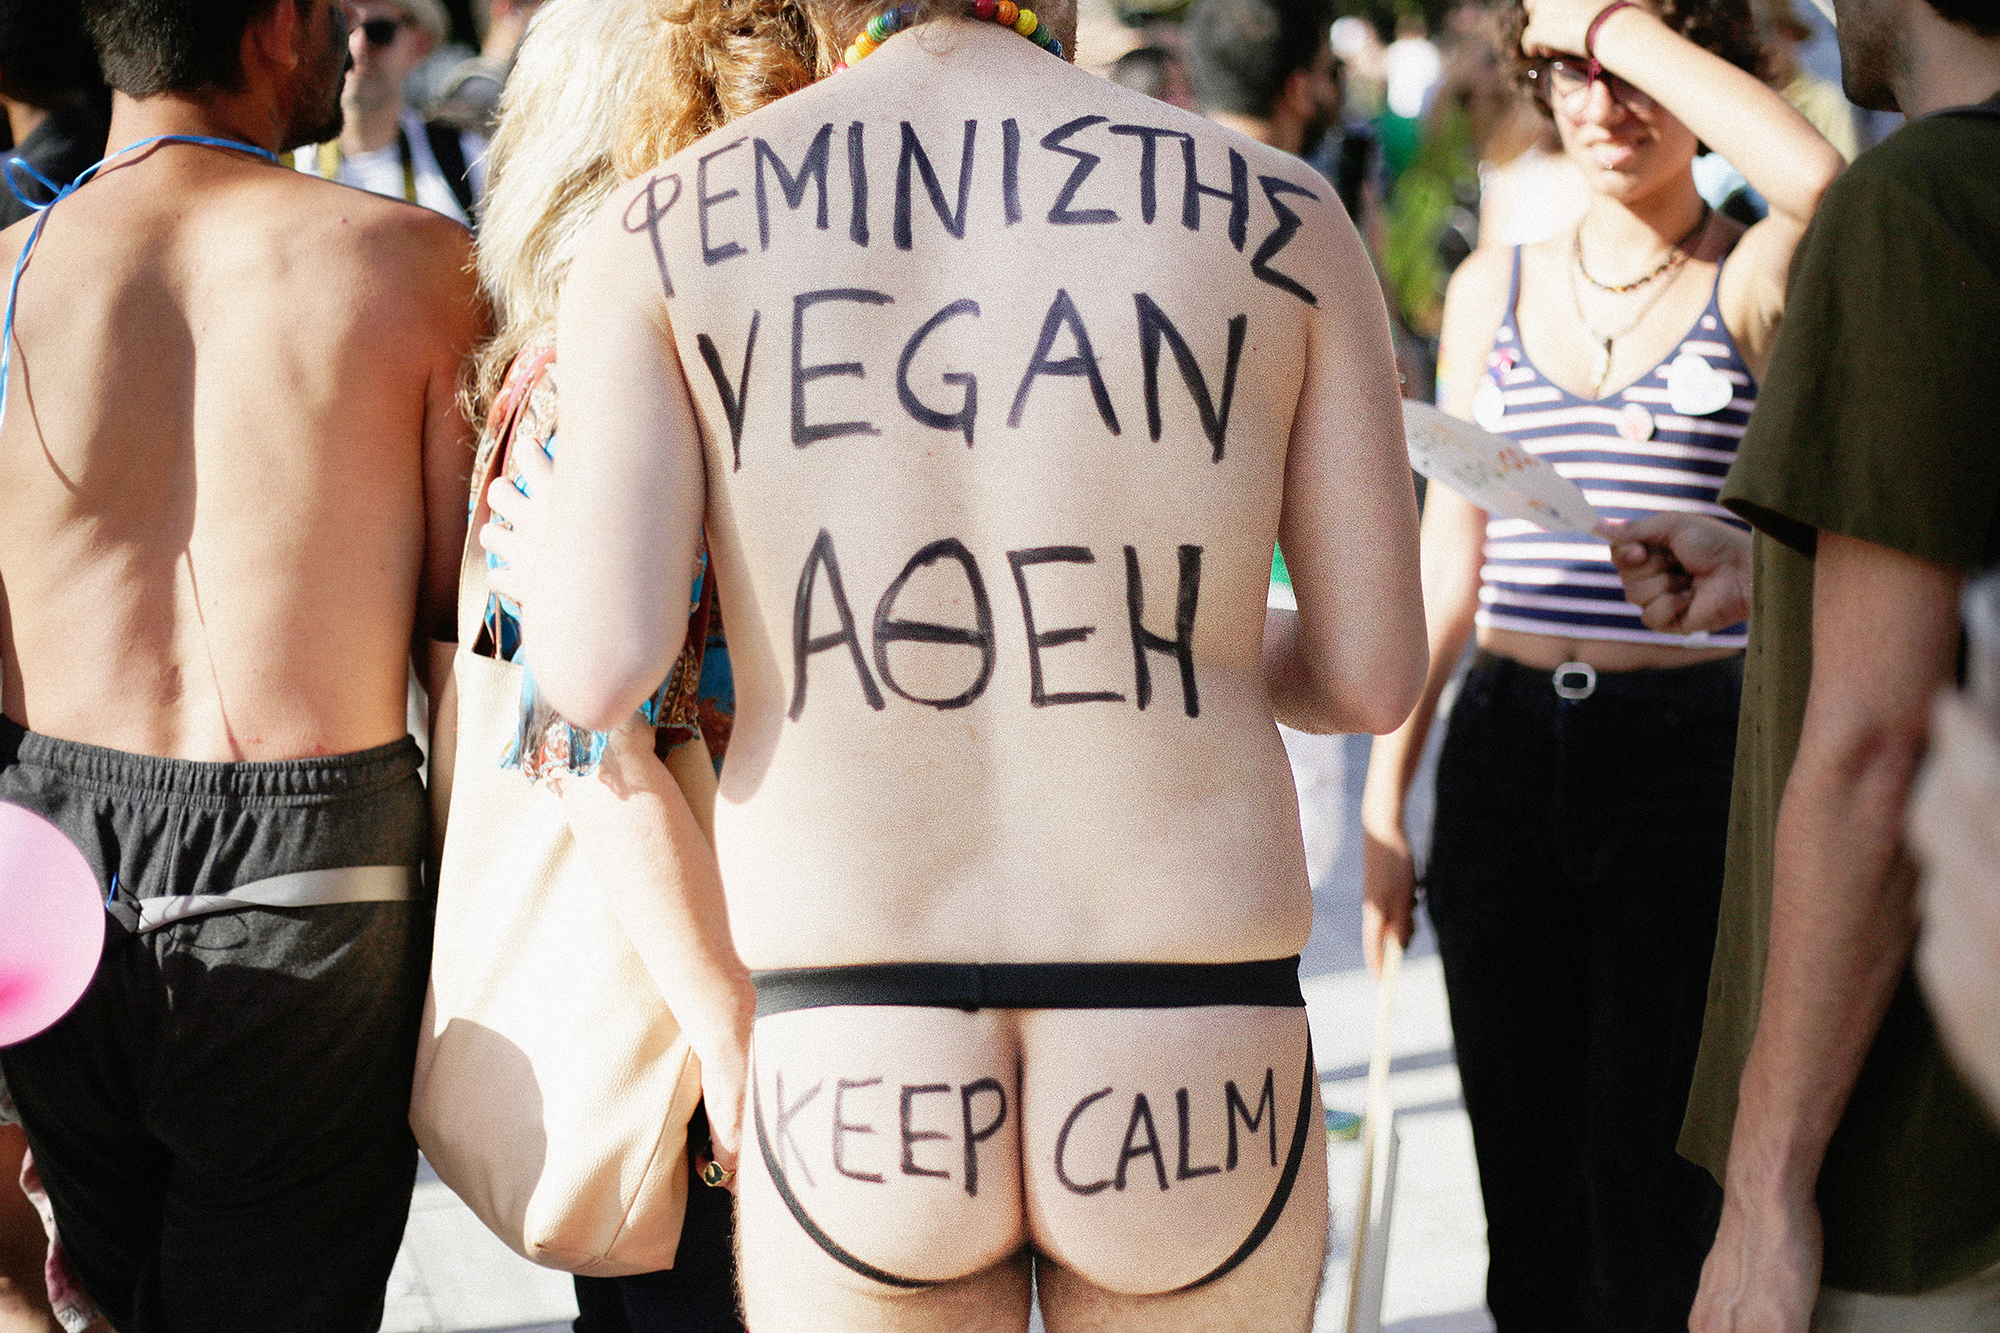 ΦΕΜΙΝΙΣΤΗΣ
VEGAN
ΑΘΕΗ
KEEP CALM